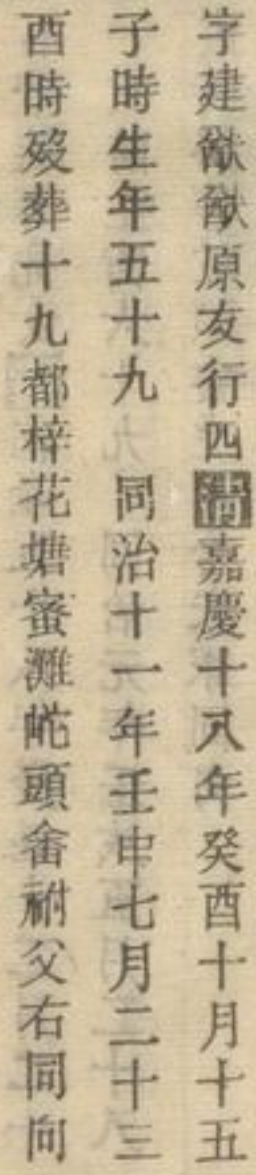 字建猷猷原友行四清嘉慶十八年癸酉十月十五
子時生年五十九 同治十一年壬申七月二十三
酉時歿葬十九都梓花塘蜜灘𡶶頭畬祔父右同向